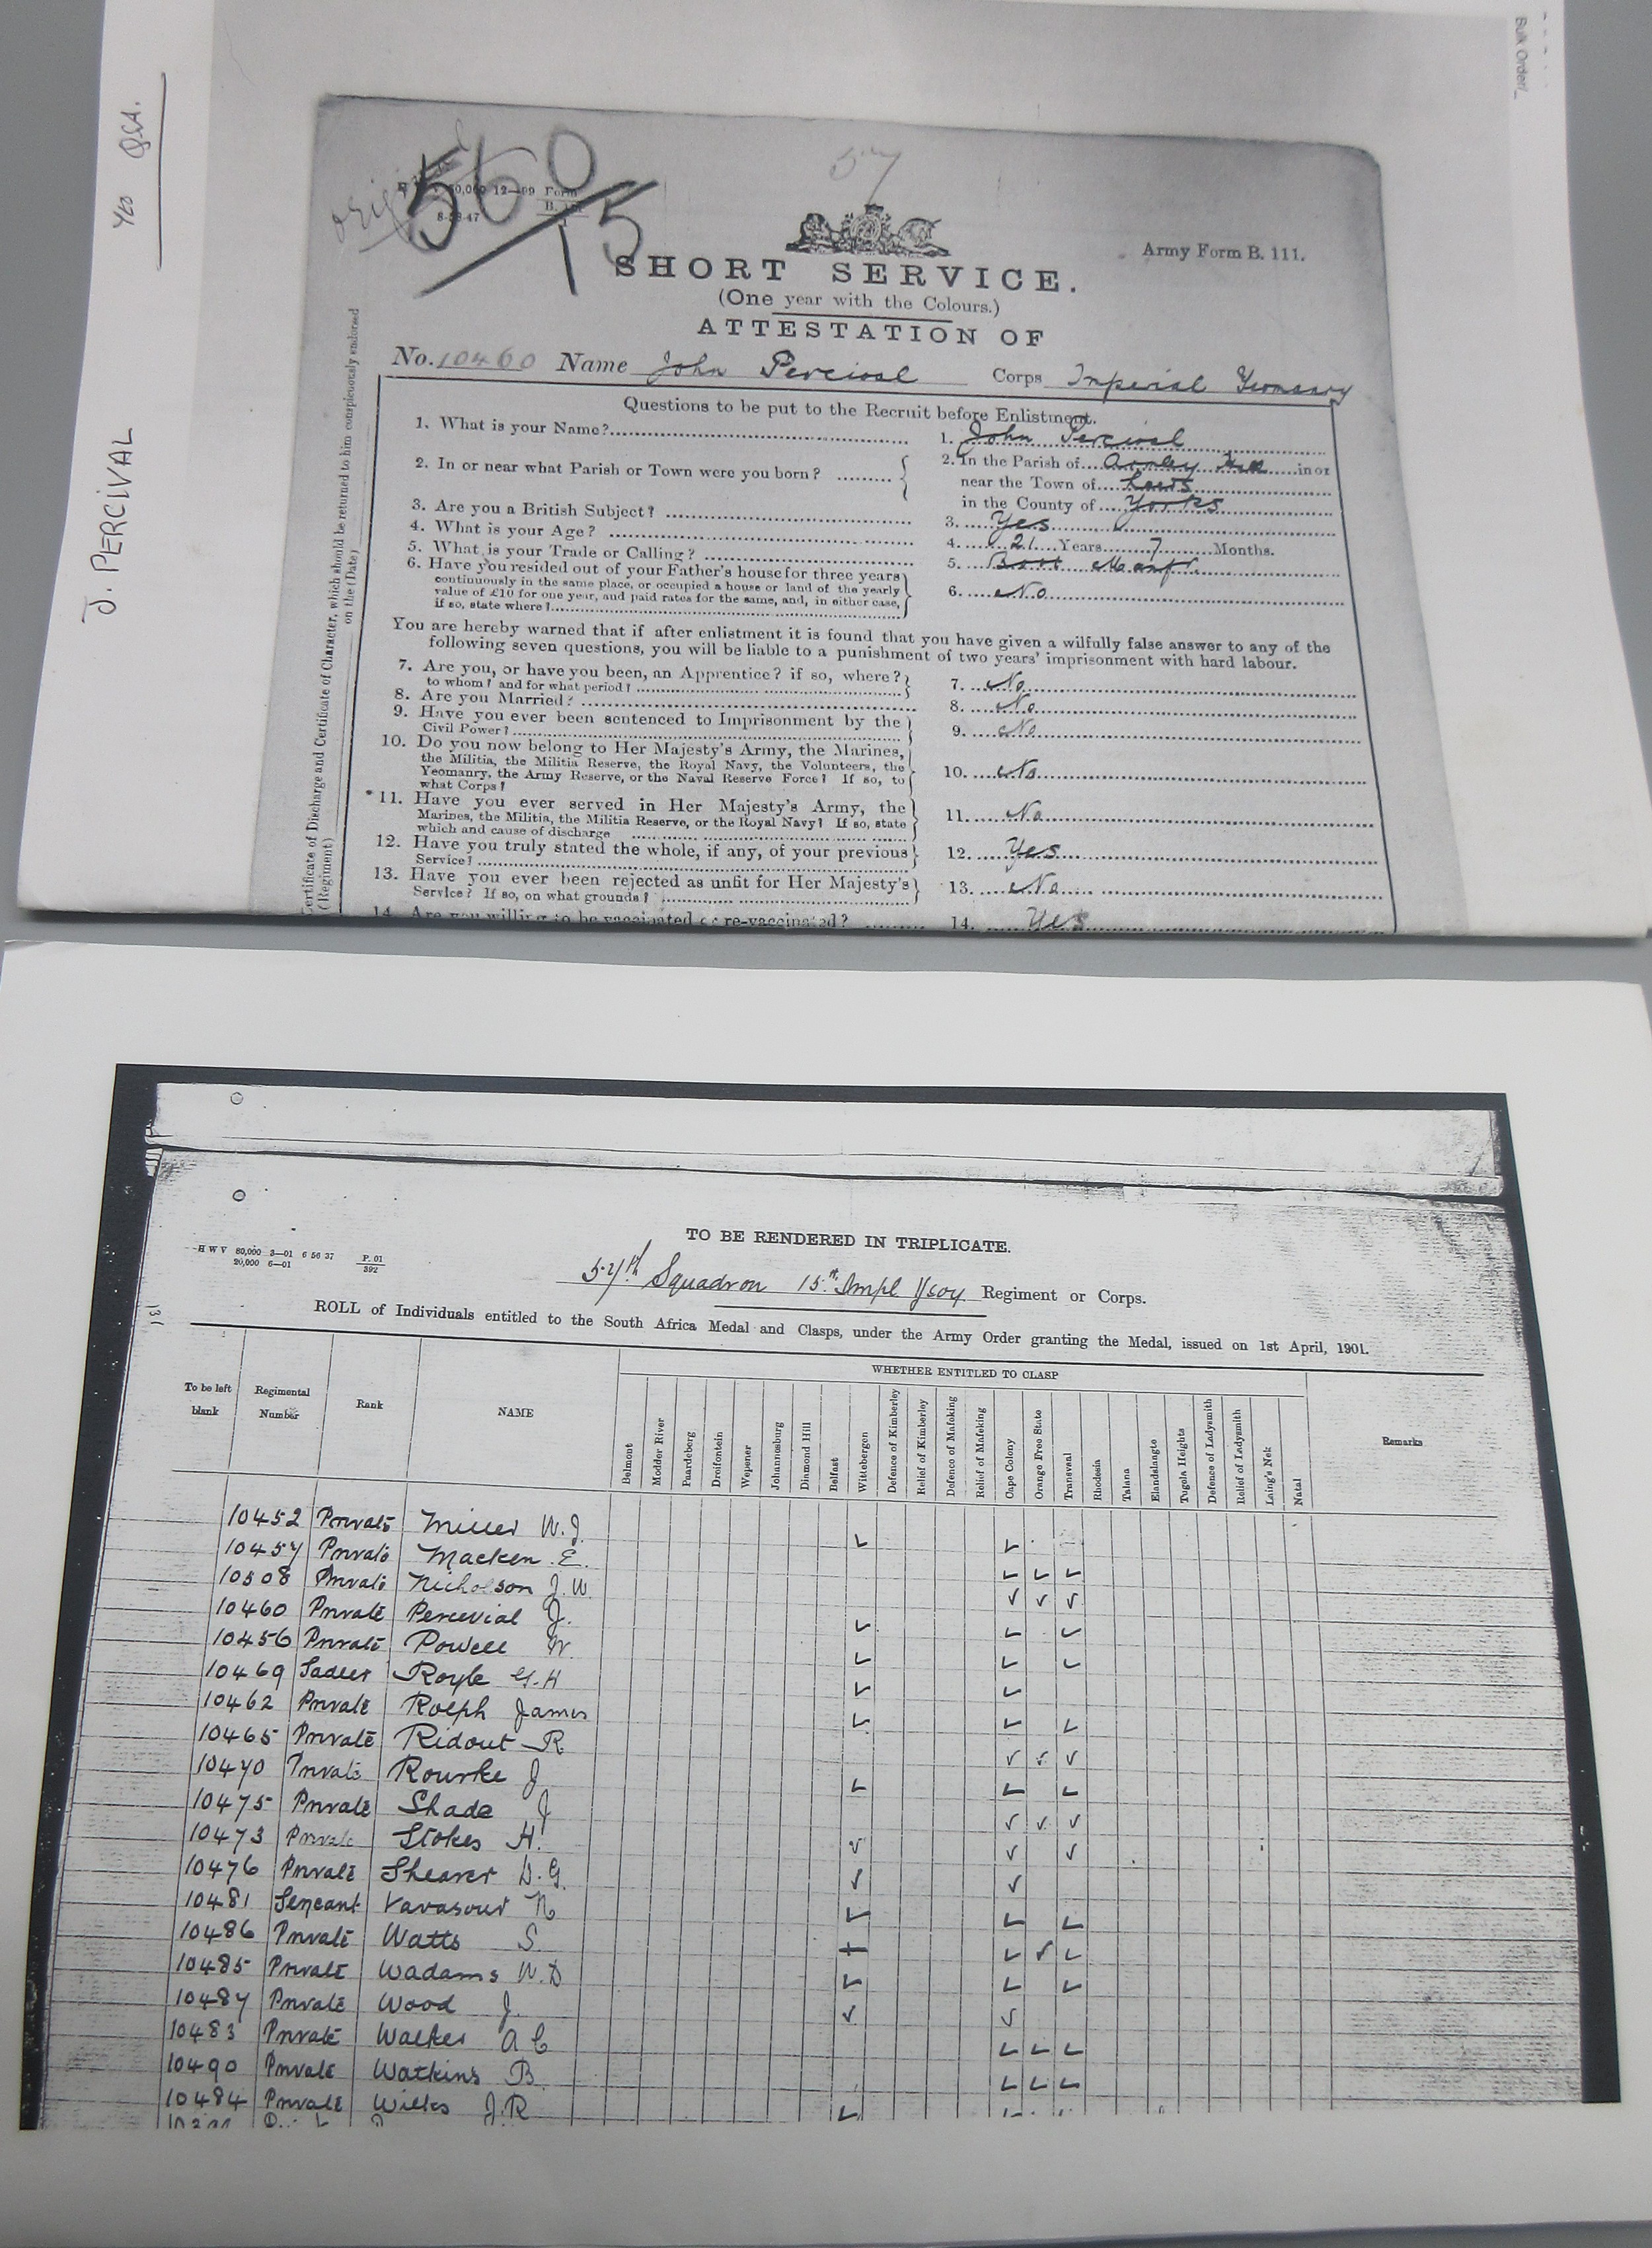 Bulk Order/_
YEO QSA.
J. PERCIVAL
560
/15
50,000 12—99 Form
8-38-47 B.
57
Army Form B. 111.
SHORT SERVICE.
(One year with the Colours.)
ATTESTATION OF
No. 10460 Name John Percival Corps Imperial Yeomanry
Questions to be put to the Recruit before Enlistment.
1. What is your Name? 1. John Percival
2. In or near what Parish or Town were you born? 2. In the Parish of Armley in or
near the Town of Leeds
in the County of Yorks
3. Are you a British Subject? 3. Yes
4. What is your Age? 4. 21 Years 7 Months.
5. What is your Trade or Calling? 5. Boot Manfr.
6. Have you resided out of your Father's house for three years
continuously in the same place, or occupied a house or land of the yearly
value of £10 for one year, and paid rates for the same, and, in either case,
if so, state where? 6. No
You are hereby warned that if after enlistment it is found that you have given a wilfully false answer to any of the
following seven questions, you will be liable to a punishment of two years' imprisonment with hard labour.
7. Are you, or have you been, an Apprentice? if so, where?
to whom? and for what period? 7. No
8. Are you Married? 8. No
9. Have you ever been sentenced to Imprisonment by the
Civil Power? 9. No
10. Do you now belong to Her Majesty's Army, the Marines,
the Militia, the Militia Reserve, the Royal Navy, the Volunteers, the
Yeomanry, the Army Reserve, or the Naval Reserve Force? If so, to
what Corps? 10. No
*11. Have you ever served in Her Majesty's Army, the
Marines, the Militia, the Militia Reserve, or the Royal Navy? If so, state
which and cause of discharge 11. No
12. Have you truly stated the whole, if any, of your previous
Service? 12. Yes
13. Have you ever been rejected as unfit for Her Majesty's
Service? If so, on what grounds? 13. No
14. Are you willing to be vaccinated or re-vaccinated? 14. Yes
Certificate of Discharge and Certificate of Character, which should be returned to him conspicuously endorsed
(Regiment) on the (Date)
H W V 80,000 3—01 6 56 37 P. 01
20,000 6—01 392
131
TO BE RENDERED IN TRIPLICATE.
57th Squadron 15th Impl Yeoy Regiment or Corps.
ROLL of Individuals entitled to the South Africa Medal and Clasps, under the Army Order granting the Medal, issued on 1st April, 1901.
WHETHER ENTITLED TO CLASP
To be left blank Regimental Number Rank NAME Belmont Modder River Paardeberg Dreifontein Wepener Johannesburg Diamond Hill Belfast Wittebergen Defence of Kimberley Relief of Kimberley Defence of Mafeking Relief of Mafeking Cape Colony Orange Free State Transvaal Rhodesia Talana Elandslaagte Tugela Heights Defence of Ladysmith Relief of Ladysmith Laing's Nek Natal Remarks
10452 Private Miller W.J.
10457 Private Macken E.
10508 Private Nicholson J.W
10460 Private Percevial J.
10456 Private Powell W.
10469 Sadler Royle G.H
10462 Private Rolph James
10465 Private Ridout R
10470 Private Rourke J
10475 Private Shade J
10473 Private Stokes H.
10476 Private Shearer D.G.
10481 Sergeant Vavasour N
10486 Private Watts S.
10485 Private Wadams W.D
10487 Private Wood J.
10483 Private Walker A C
10490 Private Watkins B.
10484 Private Wilks J.R